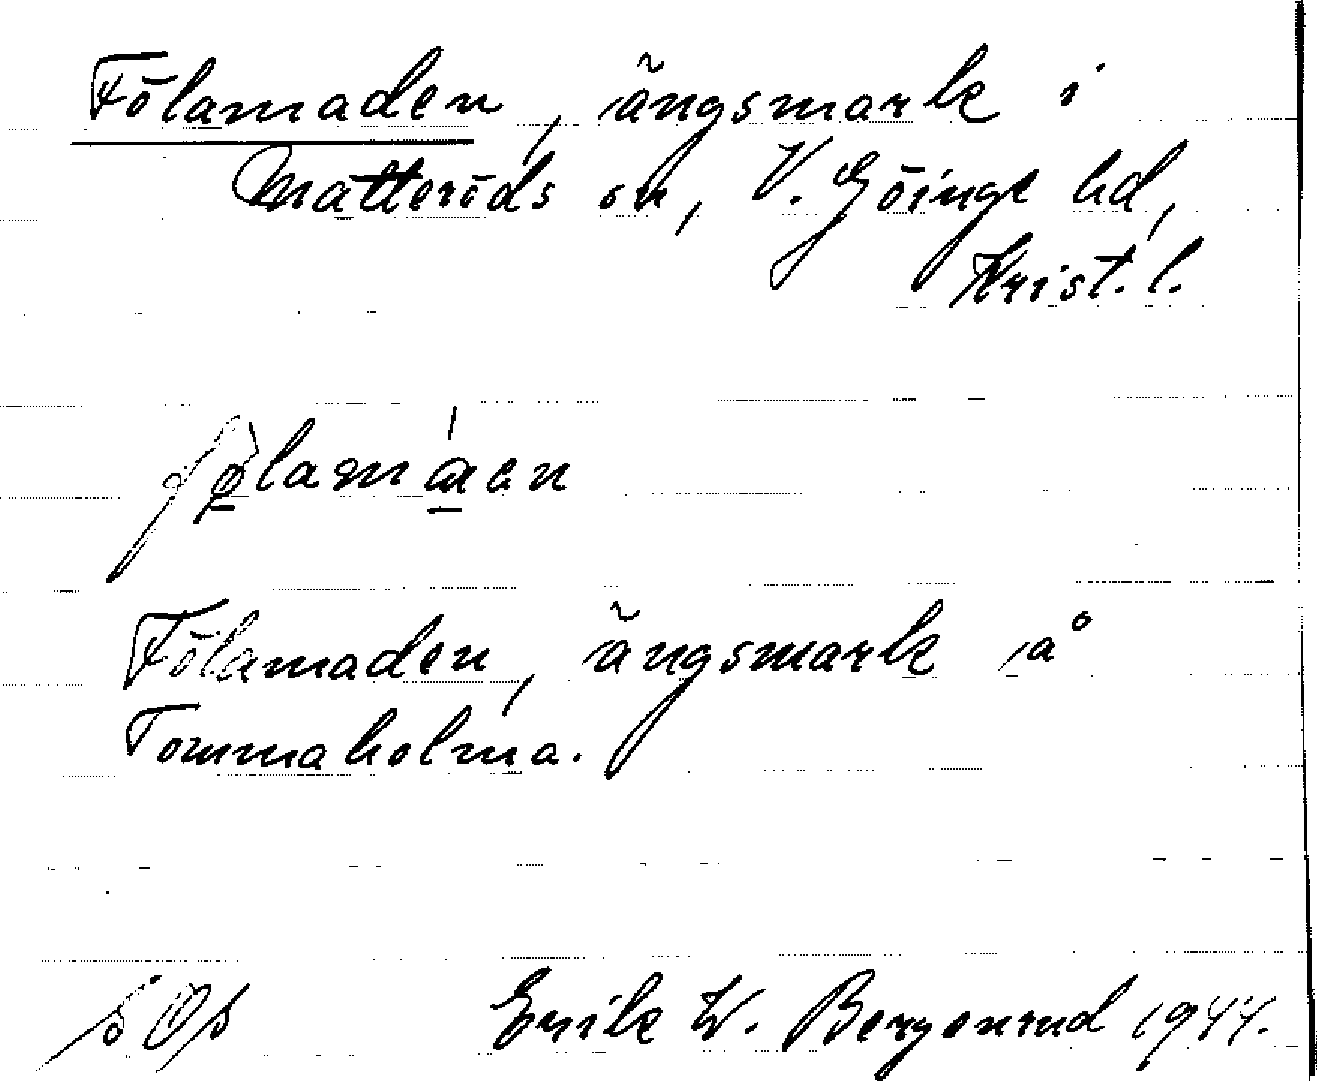 Fölamaden, ängsmark i
Matteröds sn, V. Göinge hd,
Krist. l.
Fölamaden, ängsmark å
Tommaholma.
Erik W. Bergenrud 1944.